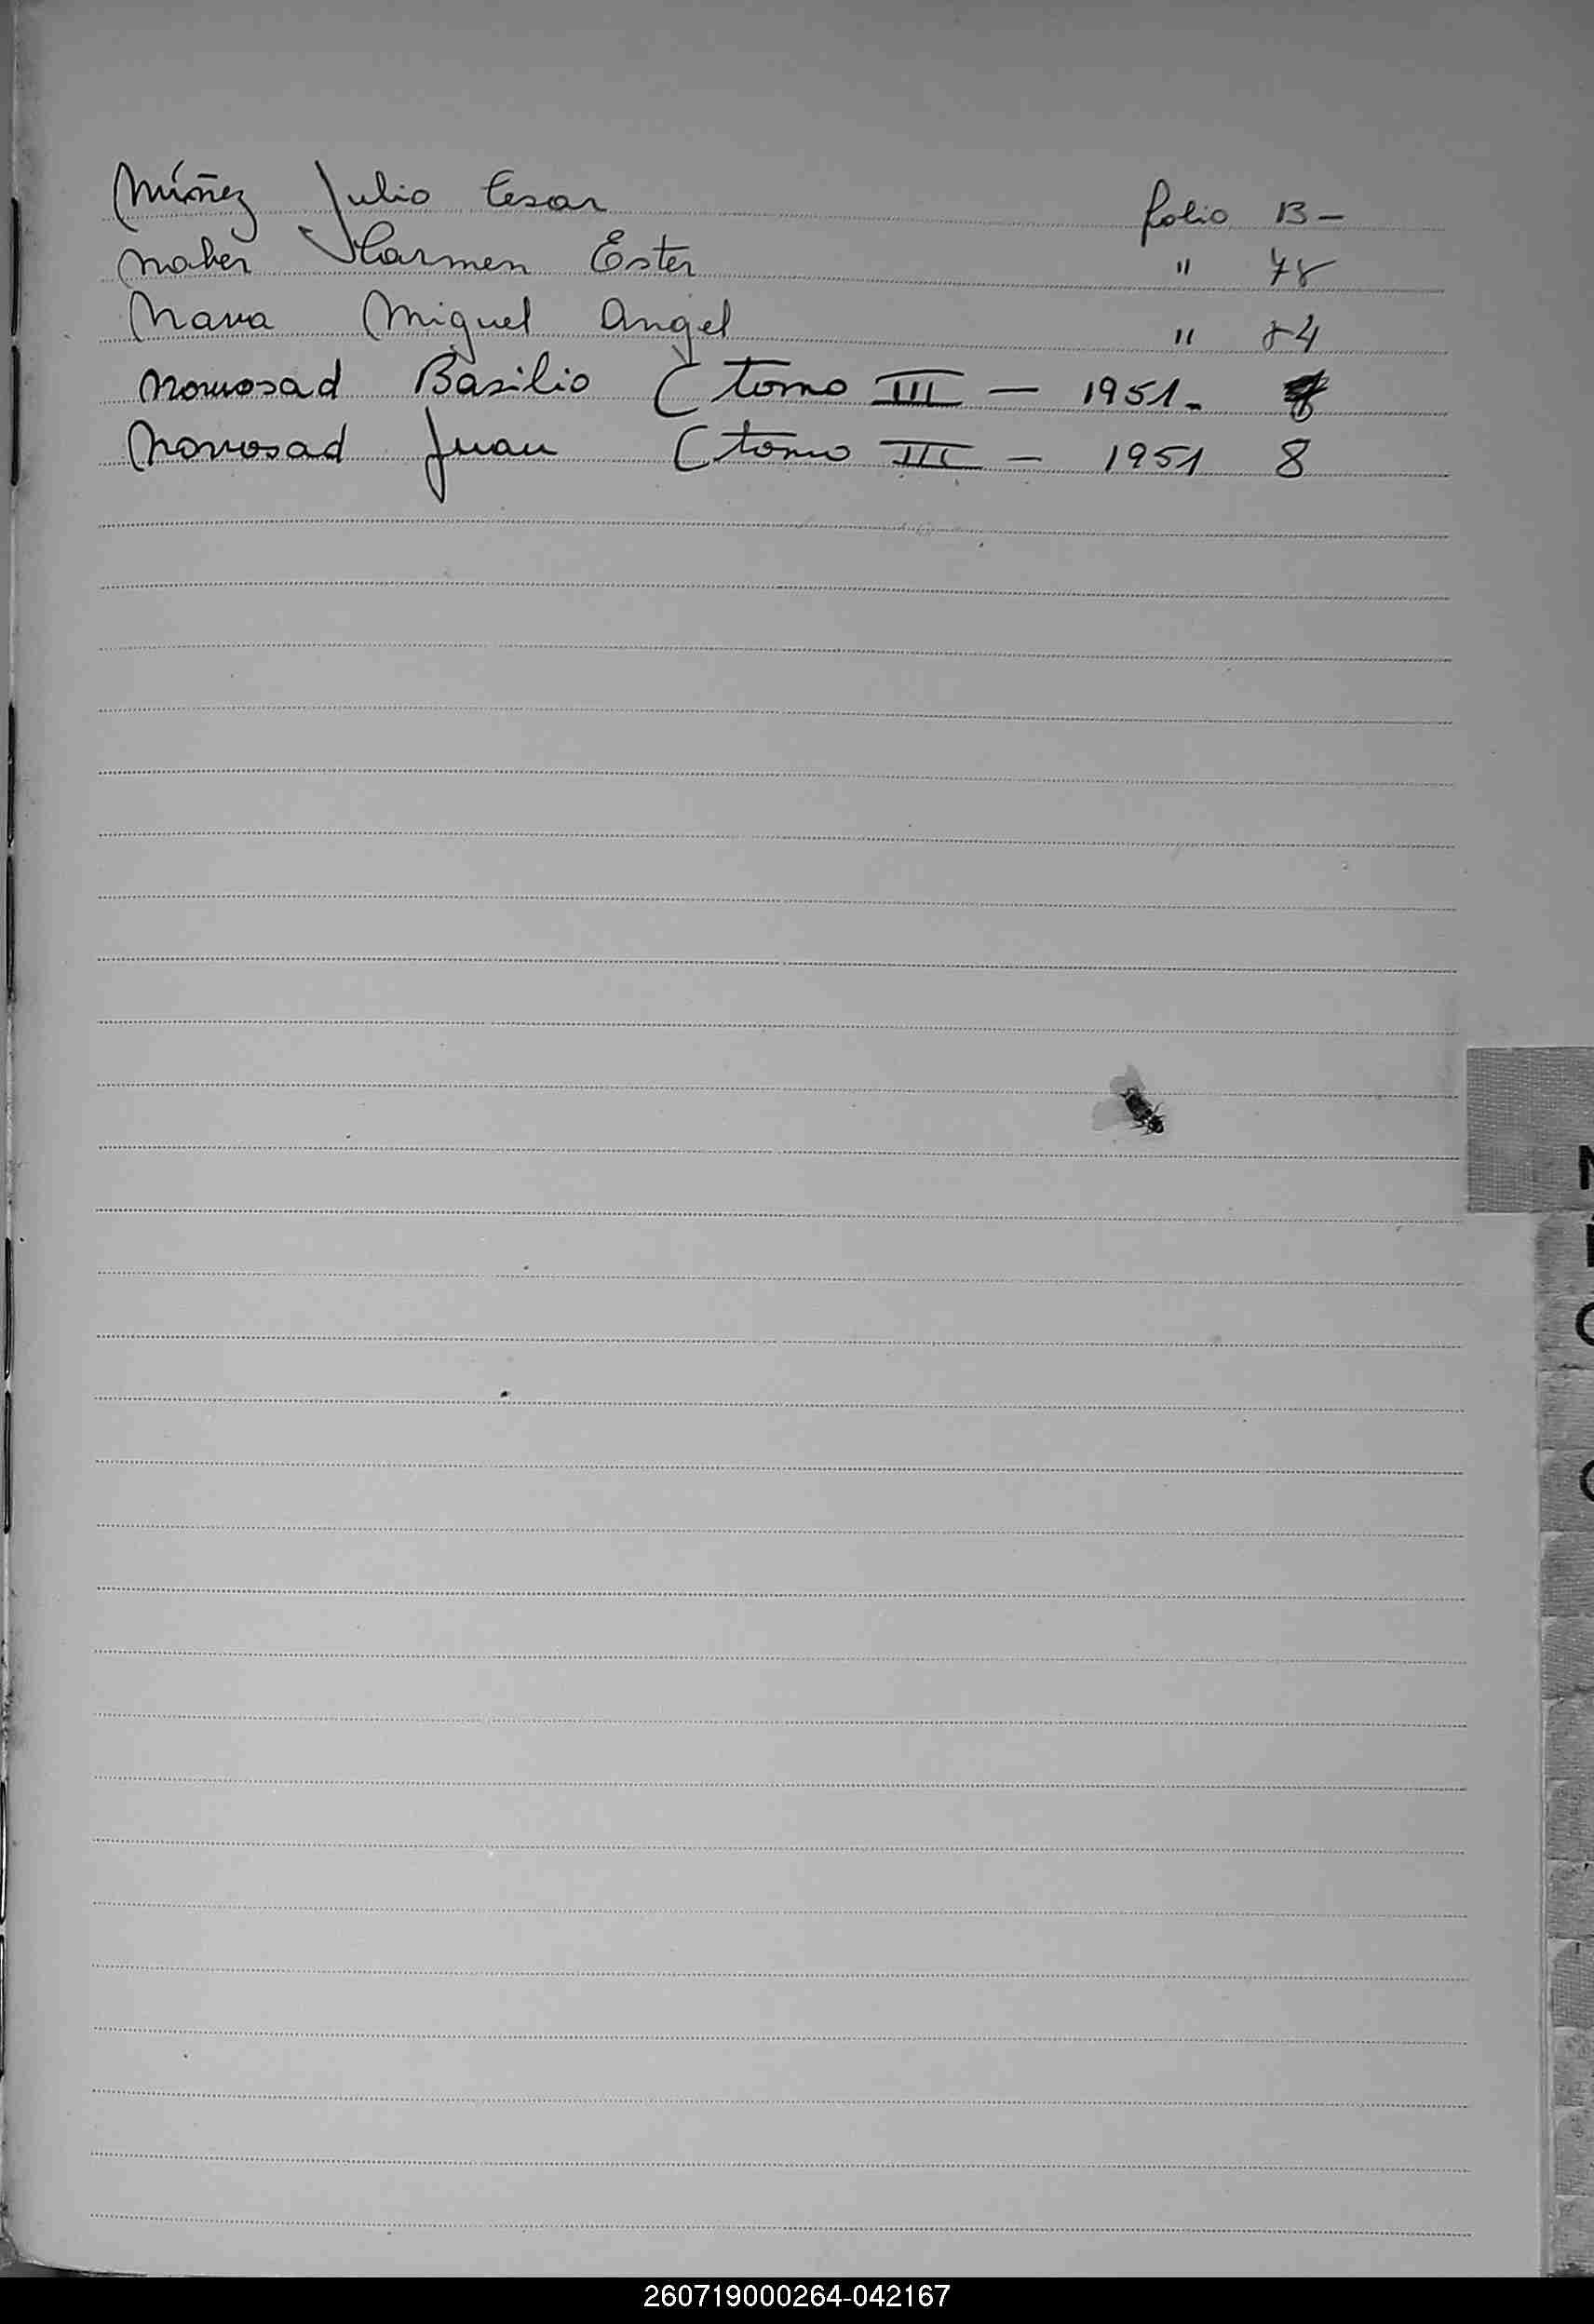 Núñez Julio Cesar folio 13-
Naber Carmen Ester " 78
Nava Miguel Angel " 84
Novosad Basilio (tomo III - 1951-
Novosad Juan (tomo III - 1951 8
N
O
260719000264-042167